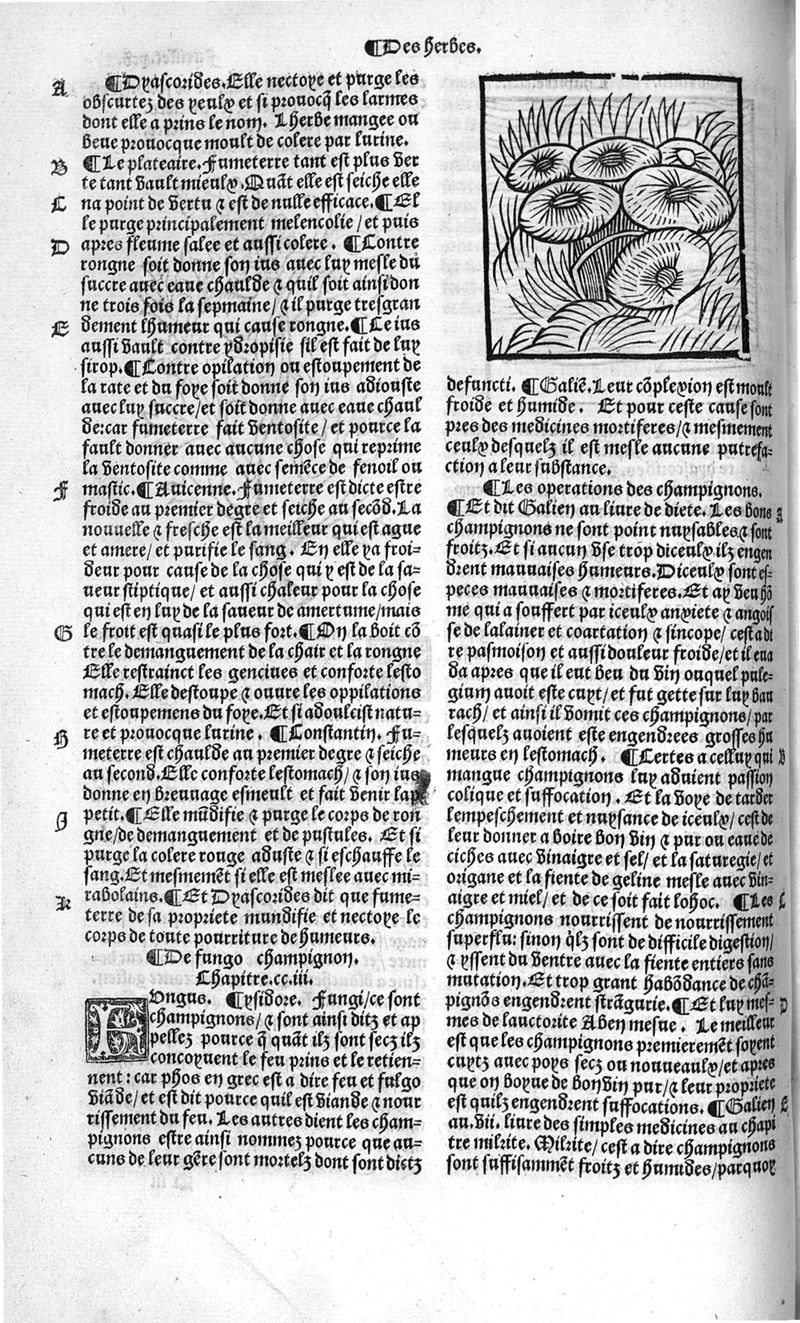 ¶Des herbes.
A ¶Dyascorides. Elle nectoye et purge les
obscurtez des yeulx et si prouocq̃ les larmes
dont elle a prins le nom. Lherbe mangee ou
beue prouocque moult de colere par lurine.
B ¶Le plateaire. Fumeterre tant est plus ver
te tant vault mieulx. Quãt elle est seiche elle
C na point de vertu ⁊ est de nulle efficace. ¶El
le purge principalement melencolie / et puis
D apres fleume salee et aussi colere. ¶Contre
rongne soit donne son ius auec luy mesle du
succre auec eaue chaulde ⁊ quil soit ainsi don
ne trois fois la sepmaine / ⁊ il purge tresgran
E dement lhumeur qui cause rongne. ¶Le ius
aussi vault contre ydropisie sil est fait de luy
sirop. ¶Contre opilation ou estoupement de
la rate et du foye soit donne son ius adiouste
auec luy succre / et soit donne auec eaue chaul
de: car fumeterre fait ventosite / et pource la
fault donner auec aucune chose qui reprime
la ventosite comme auec semẽce de fenoil ou
F mastic. ¶Auicenne. Fumeterre est dicte estre
froide au premier degre et seiche au secõd. La
nouuelle ⁊ fresche est la meilleur qui est ague
et amere / et purifie le sang. En elle ya froi=
deur pour cause de la chose qui y est de la sa=
ueur stiptique / et aussi chaleur pour la chose
qui est en luy de la saueur de amertume / mais
G le froit est quasi le plus fort. ¶On la boit cõ
tre le demanguement de la chair et la rongne
Elle restrainct les genciues et conforte lesto
mach. Elle destoupe ⁊ ouure les oppilations
et estoupemens du foye. Et si adoulcist natu=
H re et prouocque lurine. ¶Constantin. Fu=
meterre est chaulde au premier degre ⁊ seiche
au second. Elle conforte lestomach / ⁊ son ius
donne en breuuage esmeult et fait venir lap
J petit. ¶Elle mũdifie ⁊ purge le corps de ron
gne / de demanguement et de pustules. Et si
purge la colere rouge aduste ⁊ si eschauffe le
sang. Et mesmemẽt si elle est meslee auec mi=
K rabolains. ¶Et Dyascorides dit que fume=
terre de sa propriete mundifie et nectoye le
corps de toute pourriture de humeurs.
¶De fungo champignon.
Chapitre.cc.iii.
Fungus. ¶ysidore. Fungi / ce sont
champignons / ⁊ sont ainsi ditz et ap
pellez pource q̃ quãt ilz sont secz ilz
concoyuent le feu prins et le retien=
nent: car phos en grec est a dire feu et fulgo
viãde / et est dit pource quil est viande ⁊ nour
rissement du feu. Les autres dient les cham=
pignons estre ainsi nommez pource que au=
cuns de leur gẽre sont mortelz dont sont dictz
defuncti. ¶Galiẽ. Leur cõplexion est moult
froide et humide. Et pour ceste cause sont
pres des medicines mortiferes / ⁊ mesmement
ceulx desquelz il est mesle aucune putrefa=
ction a leur substance.
¶Les operations des champignons.
¶Et dit Galien au liure de diete. Les bons A
champignons ne sont point nuysables ⁊ sont
froitz. Et si aucun vse trop diceulx ilz engen
drent mauuaises humeurs. Diceulx sont es=
peces mauuaises ⁊ mortiferes. Et ay veu hõ
me qui a souffert par iceulx anxiete ⁊ angois
se de lalainer et coartation ⁊ sincope / cest a di
re pasmoison et aussi douleur froide / et il eua
da apres que il eut beu du vin ouquel pule=
gium auoit este cuyt / et fut gette sur luy bau
rach / et ainsi il vomit ces champignons / par
lesquelz auoient este engendrees grosses hu
meurs en lestomach. ¶Certes a celluy qui B
mangue champignons luy aduient passion
colique et suffocation. Et la voye de tarder
lempeschement et nuysance de iceulx / cest de
leur donner a boire bon vin ⁊ pur ou eaue de
ciches auec vinaigre et sel / et la saturegie / et
origane et la fiente de geline mesle auec vin=
aigre et miel / et de ce soit fait lohoc. ¶Les C
champignons nourrissent de nourrissement
superflu: sinon q̃lz sont de difficile digestion /
⁊ yssent du ventre auec la fiente entiers sans
mutation. Et trop grant habõdance de chã=
pignõs engendrent strãgurie. ¶Et luy mes= D
mes de lauctorite Aben mesue. Le meilleur
est que les champignons premieremẽt soyent
cuytz auec poys secz ou nouueaulx / et apres
que on boyue de bon vin pur / ⁊ leur propriete
est quilz engendrent suffocations. ¶Galien E
au.vii. liure des simples medicines au chapi
tre milrite. Milrite / cest a dire champignons
sont suffisammẽt froitz et humides / parquoy